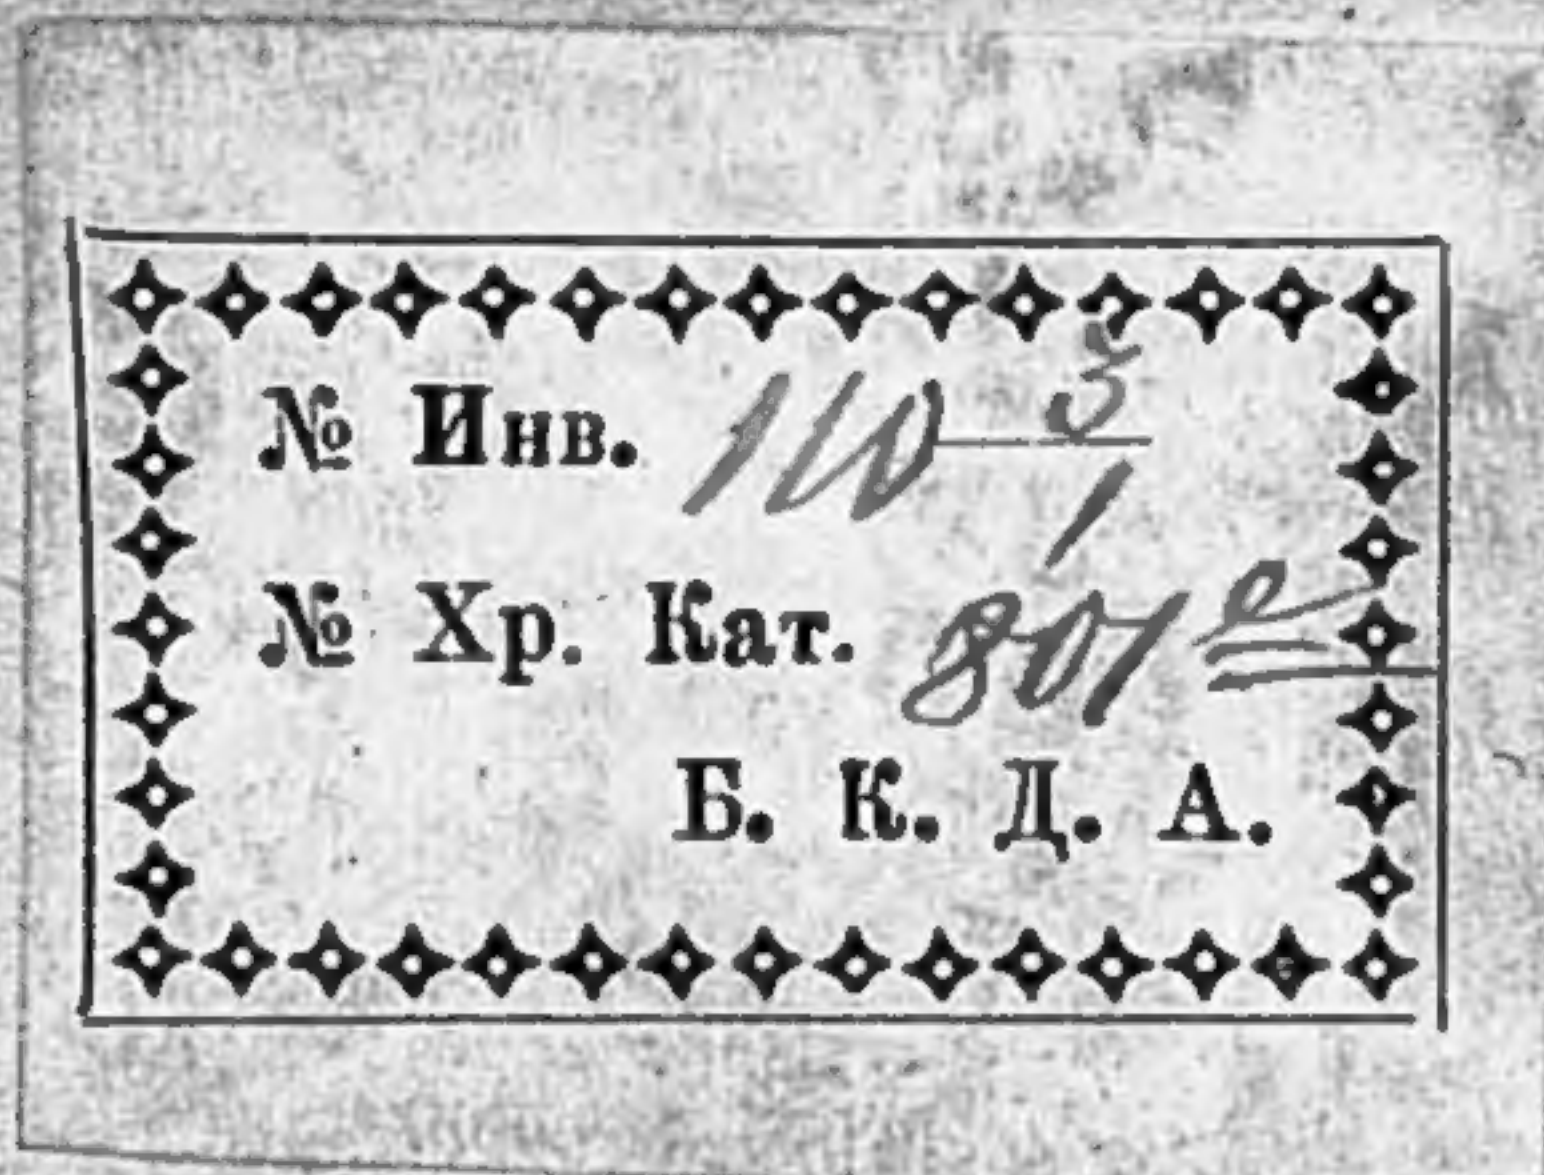 № Инв. 110 3/1
№ Хр. Кат. 801 e
Б. К. Д. А.